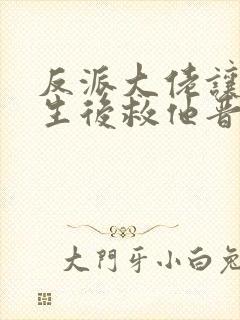 反派大佬讓
生後救他晋
大門牙小白兔